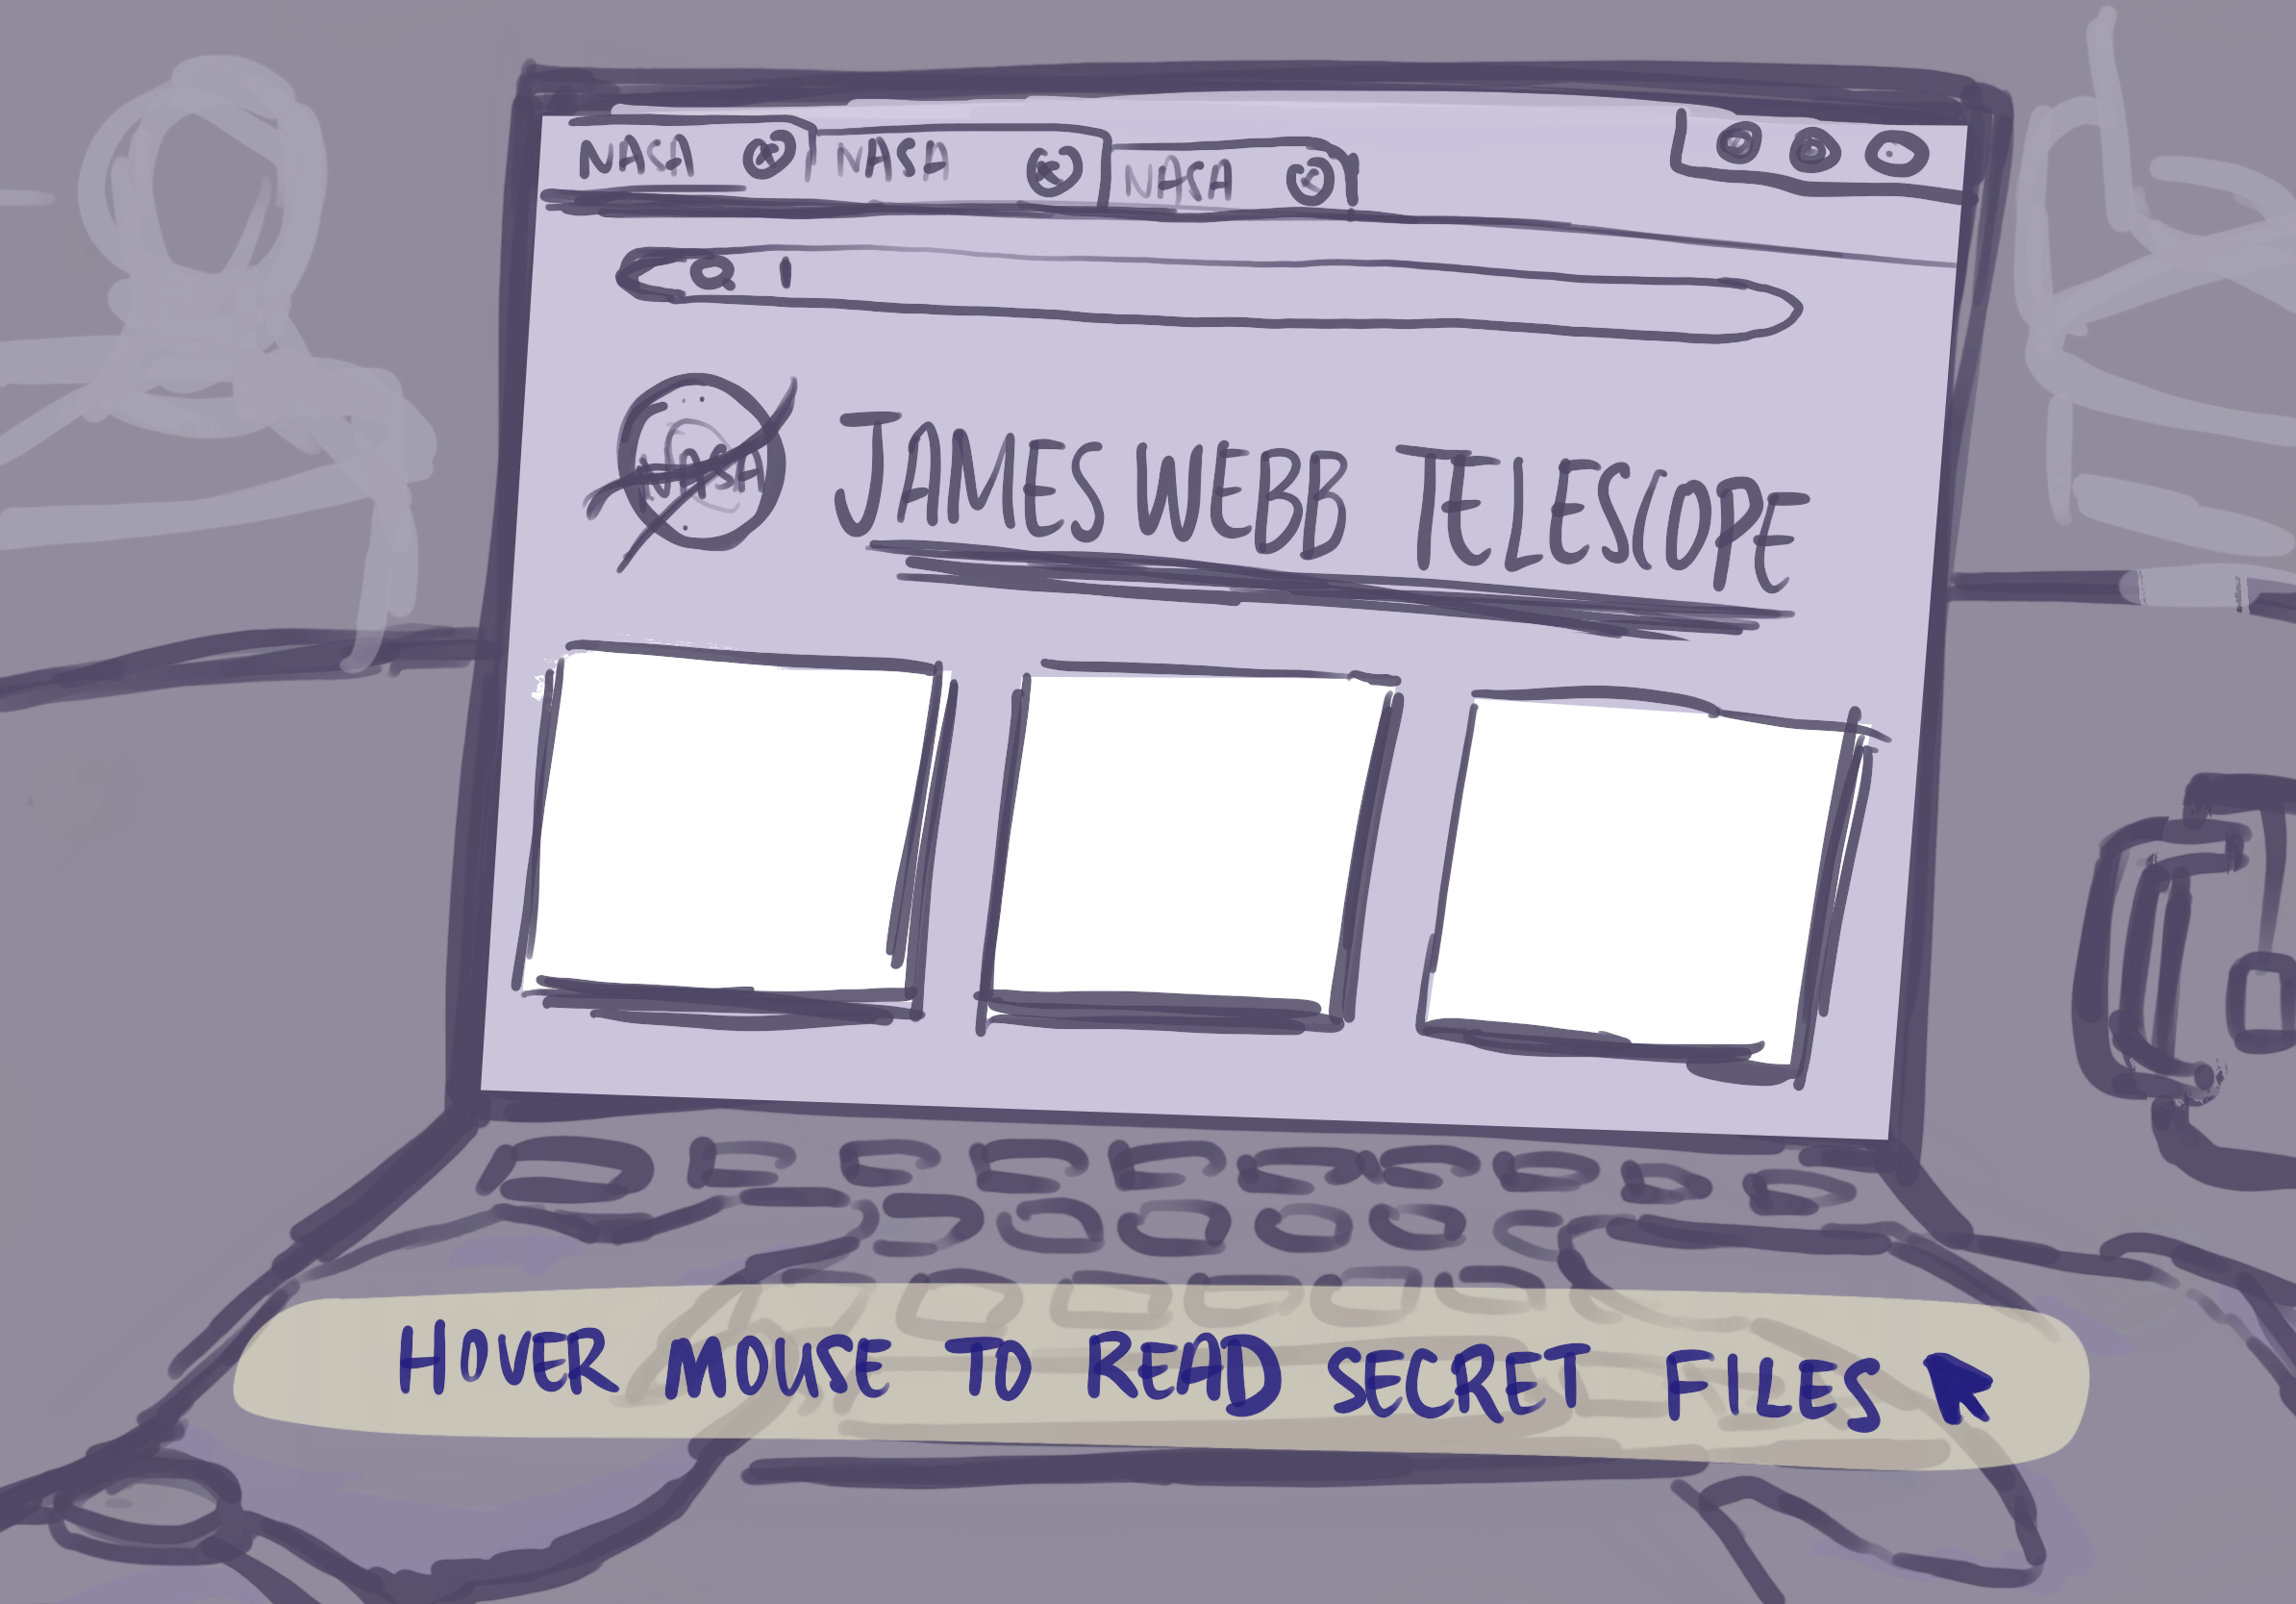 NASA NASA NASA
NASA JAMES WEBB TELESCOPE
HOVER MOUSE TO READ SECRET FILES